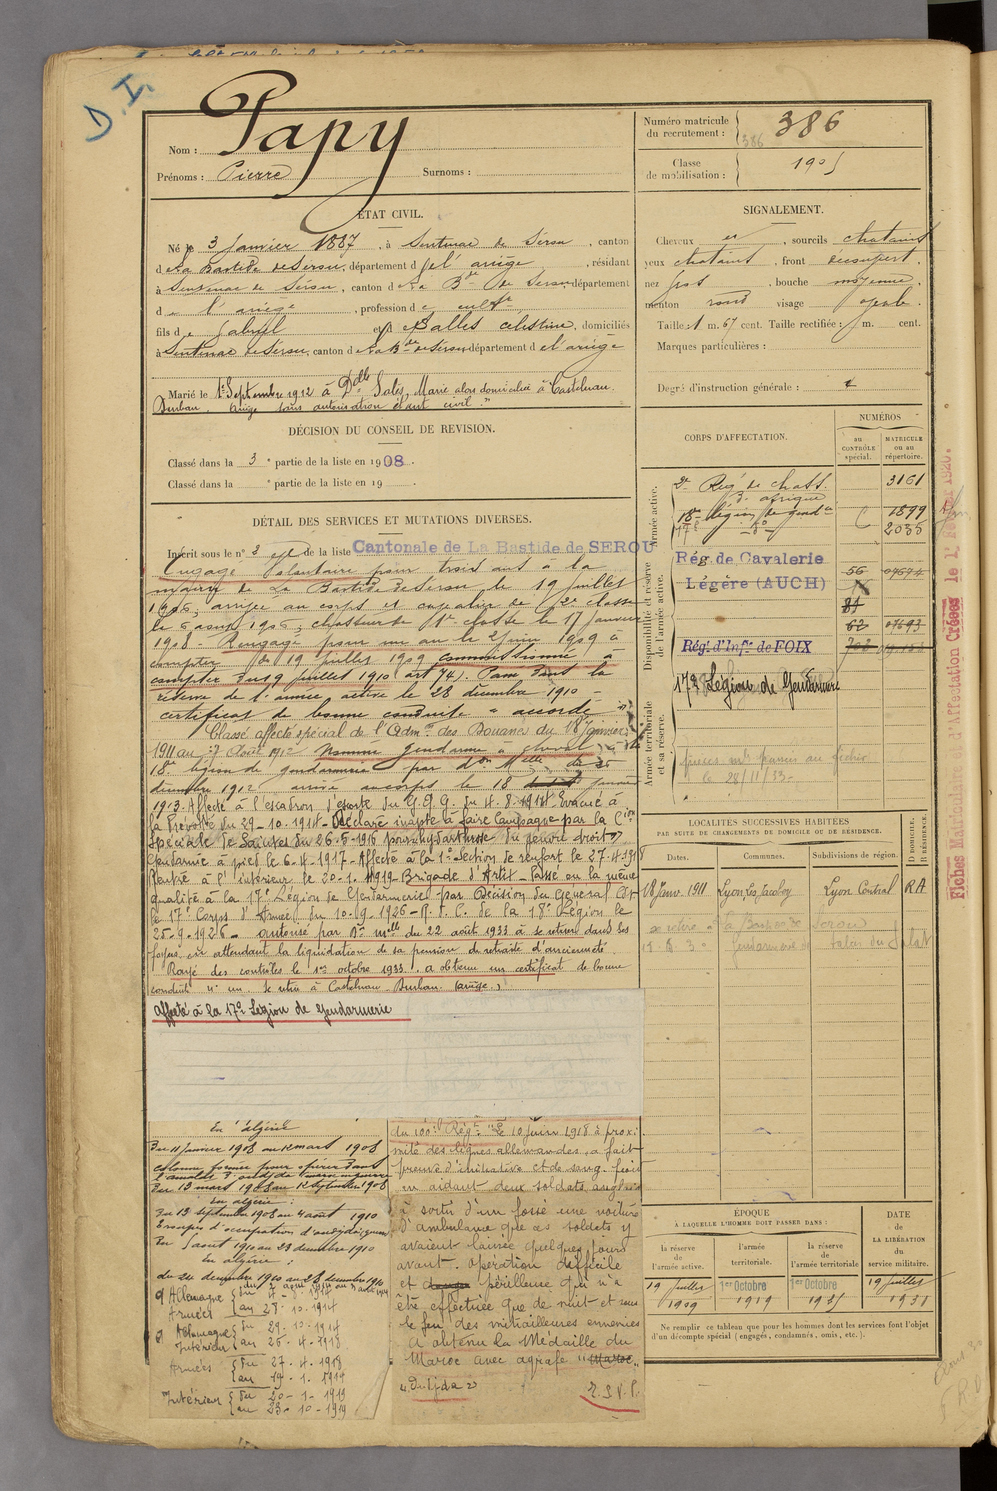 D. I.
Nom : Papy
Prénoms : Pierre Surnoms :
Numéro matricule du recrutement : 386 386
Classe de mobilisation : 1905
ÉTAT CIVIL.
Né le 3 Janvier 1887, à Sentenac de Sérou, canton
de La Bastide de Sérou, département de l'ariège, résidant
à Sentenac de Sérou, canton de La Bde de Sérou département
de l'ariège, profession de cultr
fils de Gabriel et de Ballés célestine, domiciliés
à Sentenac de Sérou, canton de La Bde de Sérou département de l'ariège
Marié le 1er Septembre 1912 à Delle Salès, Marie alors domiciliée à Castelnau
Durban. Ariège sans autorisation étant civil."
SIGNALEMENT.
Cheveux et, sourcils chatains
yeux chatains, front découvert,
nez gros, bouche moyenne,
menton rond visage ovale.
Taille 1 m. 67 cent. Taille rectifiée : m. cent.
Marques particulières :
Degré d'instruction générale :
DÉCISION DU CONSEIL DE REVISION.
Classé dans la 3e partie de la liste en 1908.
Classé dans la e partie de la liste en 19
CORPS D'AFFECTATION.
NUMÉROS
au CONTRÔLE spécial.
MATRICULE ou au répertoire.
Armée active.
2e Régt de chass. d'afrique 3161
18e légion de gendie 1899
17e -do- 2035
Disponibilité et réserve de l'armée active.
Rég. de Cavalerie
Légère (AUCH) 56
Rég. d'Infie de FOIX
Armée territoriale et sa réserve.
17e Légion de Gendarmerie
le 28/11/33
DÉTAIL DES SERVICES ET MUTATIONS DIVERSES.
Inscrit sous le n° 3 de la liste Cantonale de La Bastide de SEROU
Engagé Volontaire pour trois ans à la
mairie de La Bastide de Sérou le 19 juillet
1906, arrivé au corps et cavalier de 2e classe
le 6 août 1906, chasseur de 1re classe le 17 janvier
1908 - Rengagé pour un an le 2 juin 1909 à
compter du 19 juillet 1909 commissionné à
compter du 19 juillet 1910 art 74). Passé dans la
réserve de l'armée active le 28 décembre 1910 -
certificat de bonne conduite " accordé "
Classé affecté spécial de l'Admon des Douanes du 18 Janvier
1911 au 7 Août 1912 Nommé gendarme à cheval à la
18e légion de gendarmerie par don Mlle du 26
décembre 1912 arrivé au corps le 18 janvier
1913. Affecté à l'escadron d'escorte du G.Q.G. du 4.8.1914 - Evacué à
la Prévôté du 29-10.1914 - Déclaré inapte à faire Campagne par la Cion
Spéciale de Saintes du 26-5-1916 pour hydarthrose du genou droit
Gendarme à pied le 6.4.1917 - Affecté à la 1e Section de renfort le 27.4.1918
Rentré à l'intérieur le 20-1.1919 - Brigade d'Artix - Passé en la même
qualité à la 17e Légion de Gendarmerie par Décision du Général Ct
le 17e Corps d'Armée du 10.9-1926 - R.T.C. de la 18e Légion le
25-9-1926 - autorisé par Don mlle du 22 août 1933 à se retirer dans ses
foyers en attendant la liquidation de sa pension de retraite d'ancienneté.
Rayé des contrôles le 1er octobre 1933. a obtenu un certificat de bonne
conduite n° un. Se retire à Castelnau-Durban (ariège.)
Affecté à la 17e Légion de Gendarmerie
LOCALITÉS SUCCESSIVES HABITÉES
PAR SUITE DE CHANGEMENTS DE DOMICILE OU DE RÉSIDENCE.
Dates. Communes. Subdivisions de région. D DOMICILE. R RÉSIDENCE.
18 Janv. 1911 Lyon Central R A
se retire à La Bastide de Sérou
En algérie
Du 11 janvier 1908 au 12 mars 1908
Du 13 mars 1908 au 12 septembre 1908
En algérie :
Du 13 septembre 1908 au 4 août 1910
Troupes d'occupation
Du 5 août 1910 au 23 décembre 1910
En algérie :
du 24 décembre 1910 au 28 décembre 1910
Ct Allemagne Armées { du 4-8-1914
au 28-10.1914
Ct Allemagne Intérieur { du 29-10-1914
au 26-4-1918
Armées { du 27-4-1918
au 19-1.1919
Intérieur { du 20-1-1919
au 23-10-1919
du 100e Régt "Le 10 juin 1918 à proxi
mité des lignes allemandes, a fait
preuve d'initiative et de sang-froid
en aidant deux soldats anglais
à sortir d'un fossé une voiture
d'ambulance que ces soldats y
avaient laissée quelques jours
avant. opération difficile
et périlleuse qui n'a
être effectuée que de nuit et sous
le feu des mitrailleuses ennemies
A obtenu la Médaille du
Maroc avec agrafe "Maroc"
"Oudjda"
T. S. V. P.
ÉPOQUE
À LAQUELLE L'HOMME DOIT PASSER DANS :
DATE de LA LIBÉRATION du service militaire.
la réserve de l'armée active. l'armée territoriale. la réserve de l'armée territoriale
19 juillet 1909 1er Octobre 1919 1er Octobre 1925 19 juillet 1931
Ne remplir ce tableau que pour les hommes dont les services font l'objet
d'un décompte spécial (engagés, condamnés, omis, etc.).
Fiches Matriculaire et d'Affectation Créées le 1er Février 1920.